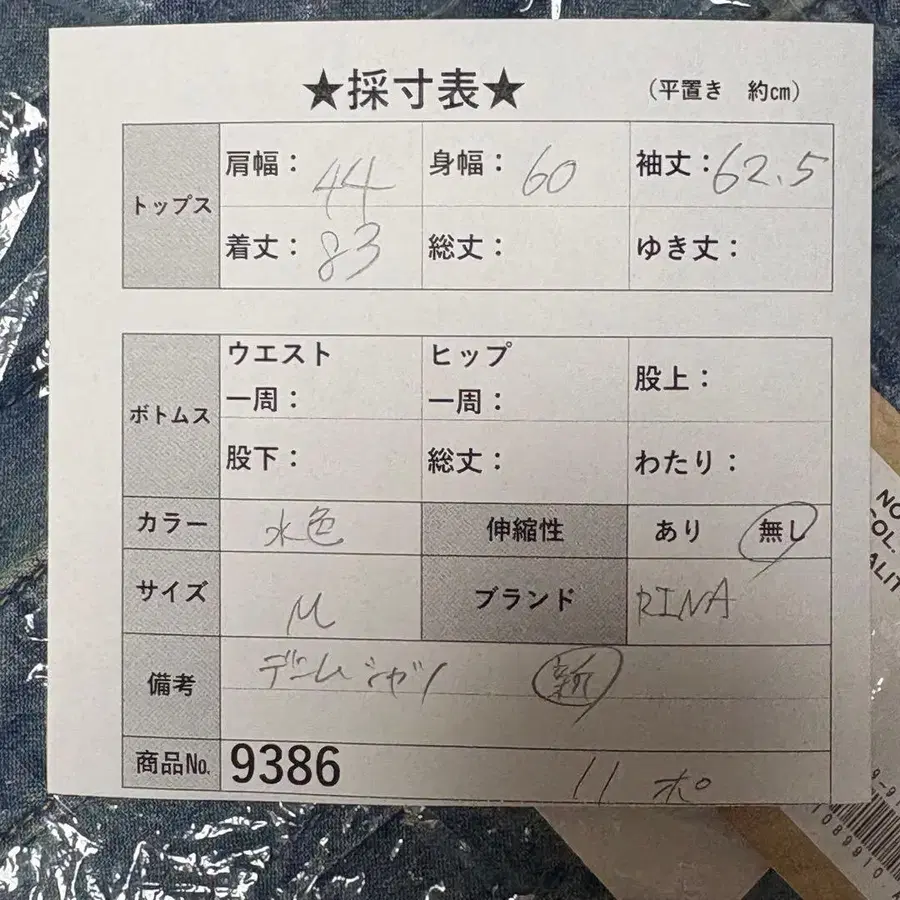 ★採寸表★ (平置き 約cm)
トップス
肩幅: 44 身幅: 60 袖丈:62.5
着丈: 83 総丈: ゆき丈:
ボトムス
ウエスト一周: ヒップ一周: 股上:
股下: 総丈: わたり:
カラー 水色 伸縮性 あり 無し
サイズ M ブランド RINA
備考 デニムシャツ 新
商品No. 9386 11 ポ